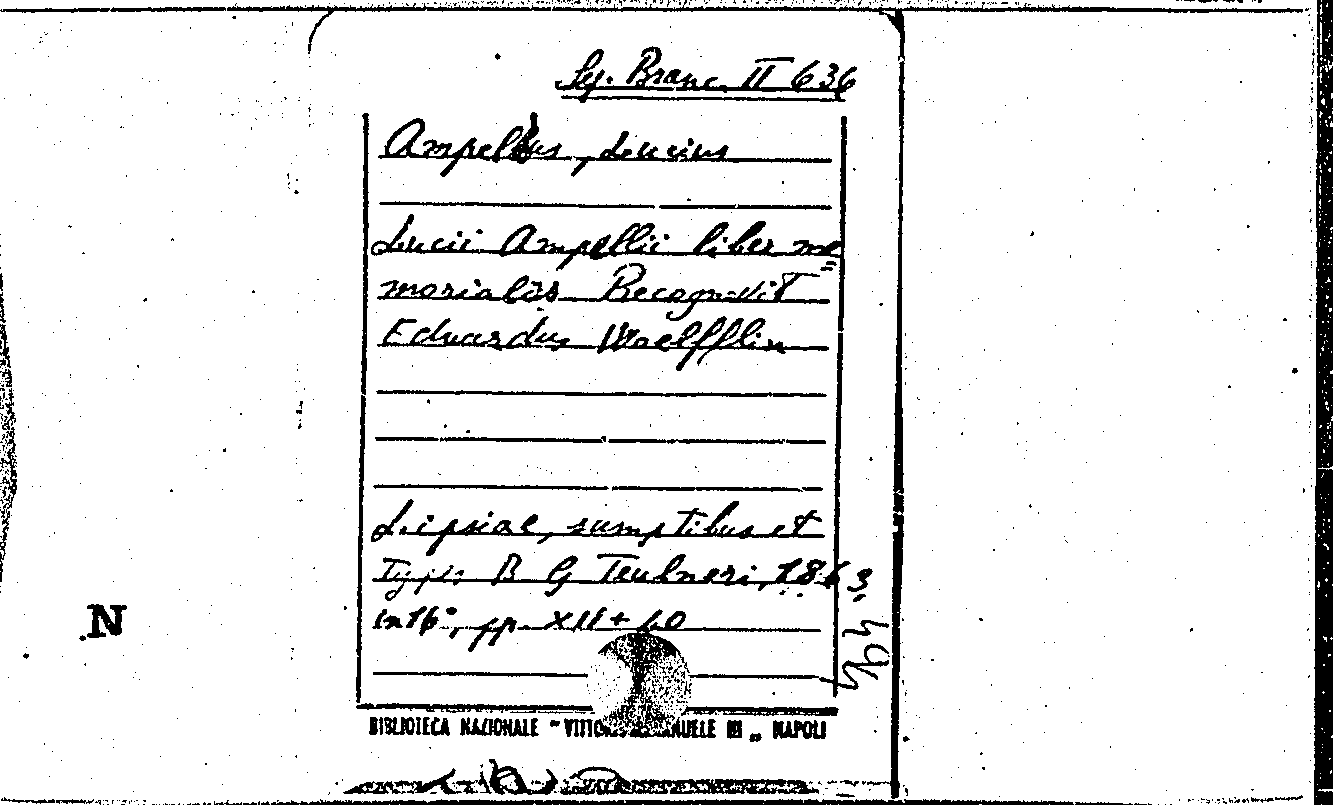 Sy. Branc. II 636
Ampellius, Lucius
Lucii Ampellii liber me=
morialis Recognovit
Eduardus Woelfflin
Lipsiae, sumptibus et
Typis B G Teubneri, 1863
in 16°, pp. XII + 40
N
BIBLIOTECA NAZIONALE "VITTORIO EMANUELE III„ NAPOLI